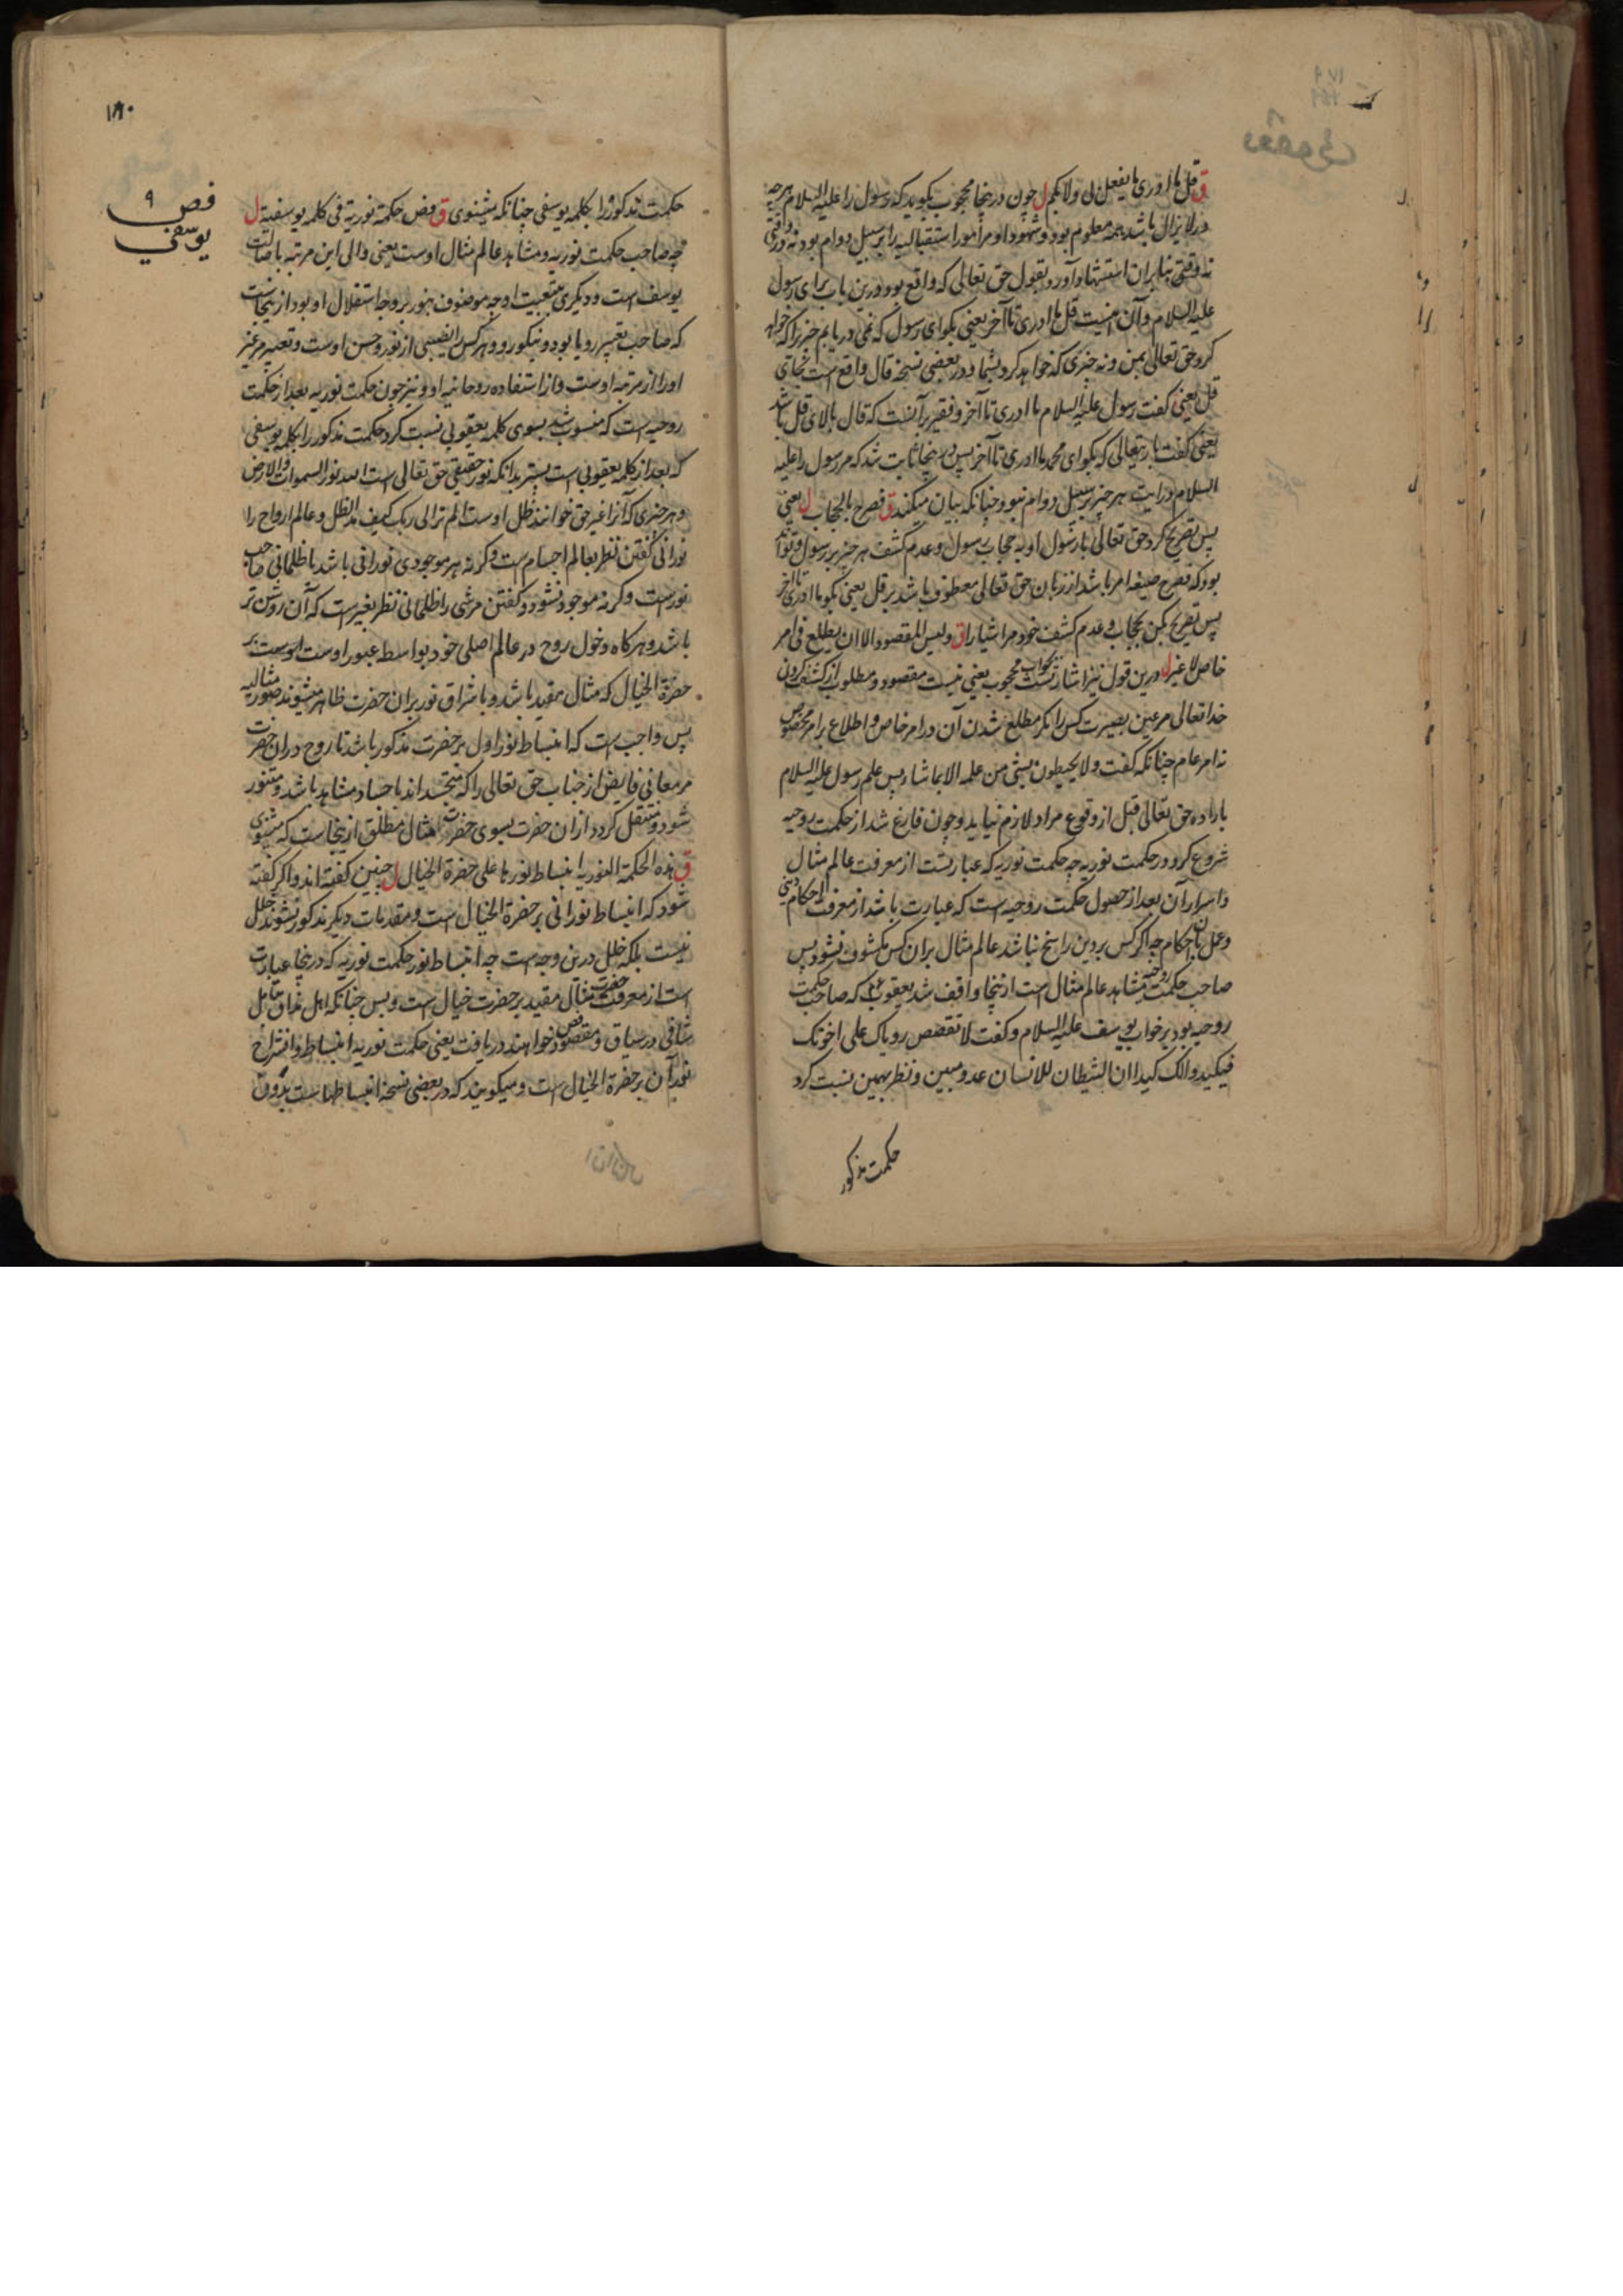 ق قل ما ادری ما یفعل بی ولا بکم ل چون درینجا محجوب بگوید که رسول را علیه السلام هرچه
در لایزال باشد همه معلوم بود و شهود او مر امور استقبالیه را بر سبیل دوام بود نه در وقتی
نه وقتی بنابران استشهاد آورد بقول حق تعالی که واقع بود درین باب برای رسول
علیه السلام و آن اینست قل ما ادری تا آخر یعنی بگو ای رسول که نمی دریابم چیزی را که خواهد
کرد حق تعالی بمن و نه چیزی که خواهد کرد بشما و در بعضی نسخه قال واقع است بجای
قل یعنی گفت رسول علیه السلام ما ادری تا آخر و فقیر بر آنست که قال بالای قل باشد
یعنی گفت باریتعالی که بگو ای محمد ما ادری تا آخر پس درینجا ثابت شد که مر رسول را علیه
السلام درایت هر چیز بر سبیل دوام نبود چنانکه بیان میکند ق فصرح بالحجاب ل یعنی
پس تصریح کرد حق تعالی یا رسول او به حجاب رسول و عدم کشف هر چیز بر رسول و تواند
بود که فصرح صیغه امر باشد از زبان حق تعالی معطوف باشد بر قل یعنی بگو ما ادری تا آخر
پس تصریح بکن بحجاب و عدم کشف خود مر اشیا را ق ولیس المقصود الا ان یطلع فی امر
خاص لا غیر ل درین قول نیز اشارتست بجواب محجوب یعنی نیست مقصود و مطلوب از کشف کردن
خدا تعالی مر عین بصیرت کس را مگر مطلع شدن آن در امر خاص و اطلاع بر امر مخصوص
نه امر عام چنانکه گفت ولا یحیطون بشی من علمه الا بما شاء پس علم رسول علیه السلام
باراده حق تعالی قبل از وقوع مراد لازم نیاید و چون فارغ شد از حکمت روحیه
شروع کرد در حکمت نوریه چه حکمت نوریه که عبارتست از معرفت عالم مثال
و اسرار آن بعد از حصول حکمت روحیه است که عبارت باشد از معرفت احکام دینی
و عمل بآن احکام چه اگر کس بر دین راسخ نباشد عالم مثال بران کس مکشوف نشود پس
صاحب حکمت روحیه مشاهد عالم مثال است ازینجا واقف شد یعقوب ع که صاحب حکمت
روحیه بود بر خواب یوسف علیه السلام و گفت لا تقصص رویاک علی اخوتک
فیکیدوا لک کیدا ان الشیطان للانسان عدو مبین و نظر بهمین نسبت کرد
حکمت مذکور
۱۸۰
فص ۹
یوسفی
حکمت مذکور را بکلمه یوسفی چنانکه بشنوی ق فص حکمة نوریة فی کلمه یوسفیة ل
چه صاحب حکمت نوریه و مشاهد عالم مثال اوست یعنی والی این مرتبه باصالت
یوسف است و دیگری بتبعیت او چه موصوف بنور بر وجه استقلال او بود ازینجاست
که صاحب تعبیر رویا بود و نیکو رو و هر کس را نصیبی از نور و حسن اوست و تعبیر مر غیر
او را از مرتبه اوست و از استفاده روحانیه او و نیز چون حکمت نوریه بعد از حکمت
روحیه است که منسوب شد بسوی کلمه یعقوبی نسبت کرد حکمت مذکور را بکلمه یوسفی
که بعد از کلمه یعقوبی است بستر بدانکه نور حقیقی حق تعالی است الله نور السموات والارض
و هر چیزی که آنرا غیر حق خوانند ظل اوست الم تر الی ربک کیف مد الظل و عالم ارواح را
نورانی گفتن نظر بعالم اجسام است وگرنه هر موجودی نورانی باشد یا ظلمانی صاحب
نور است وگرنه موجود نشود و گفتن مر شی را ظلمانی نظر بغیر است که آن روشن تر
باشد و هرگاه دخول روح در عالم اصلی خود بواسطه عبور اوست اوست بر
حضرة الخیال که مثال مقید باشد و باشراق نور بران حضرت ظاهر میشوند صور مثالیه
پس واجب است که انبساط نور اول بر حضرت مذکور باشد تا روح دران حضرت
مر معانی فایض از جناب حق تعالی را که متجسد اند باجساد مشاهد باشد و متنور
شود و منتقل گردد ازان حضرت بسوی حضرت مثال مطلق ازینجاست که میشنوی
ق هذه الحکمة النوریه انبساط نورها علی حضرة الخیال ل چنین گفته اند و اگر گفته
شود که انبساط نورانی بر حضرة الخیال است و مقدمات دیگر مذکور نشوند خلل
نیست بلکه خلل درین وجه است چه انبساط نور حکمت نوریه که درینجا عبارت
است از معرفت حضرت مثال مقید بر حضرت خیال است و بس چنانکه اهل مذاق بتامل
شافی در سیاق و مقصود فص خواهند دریافت یعنی حکمت نوریه انبساط و انشراح
نور آن بر حضرة الخیال است و میگویند که در بعضی نسخه انبساطها است بدون